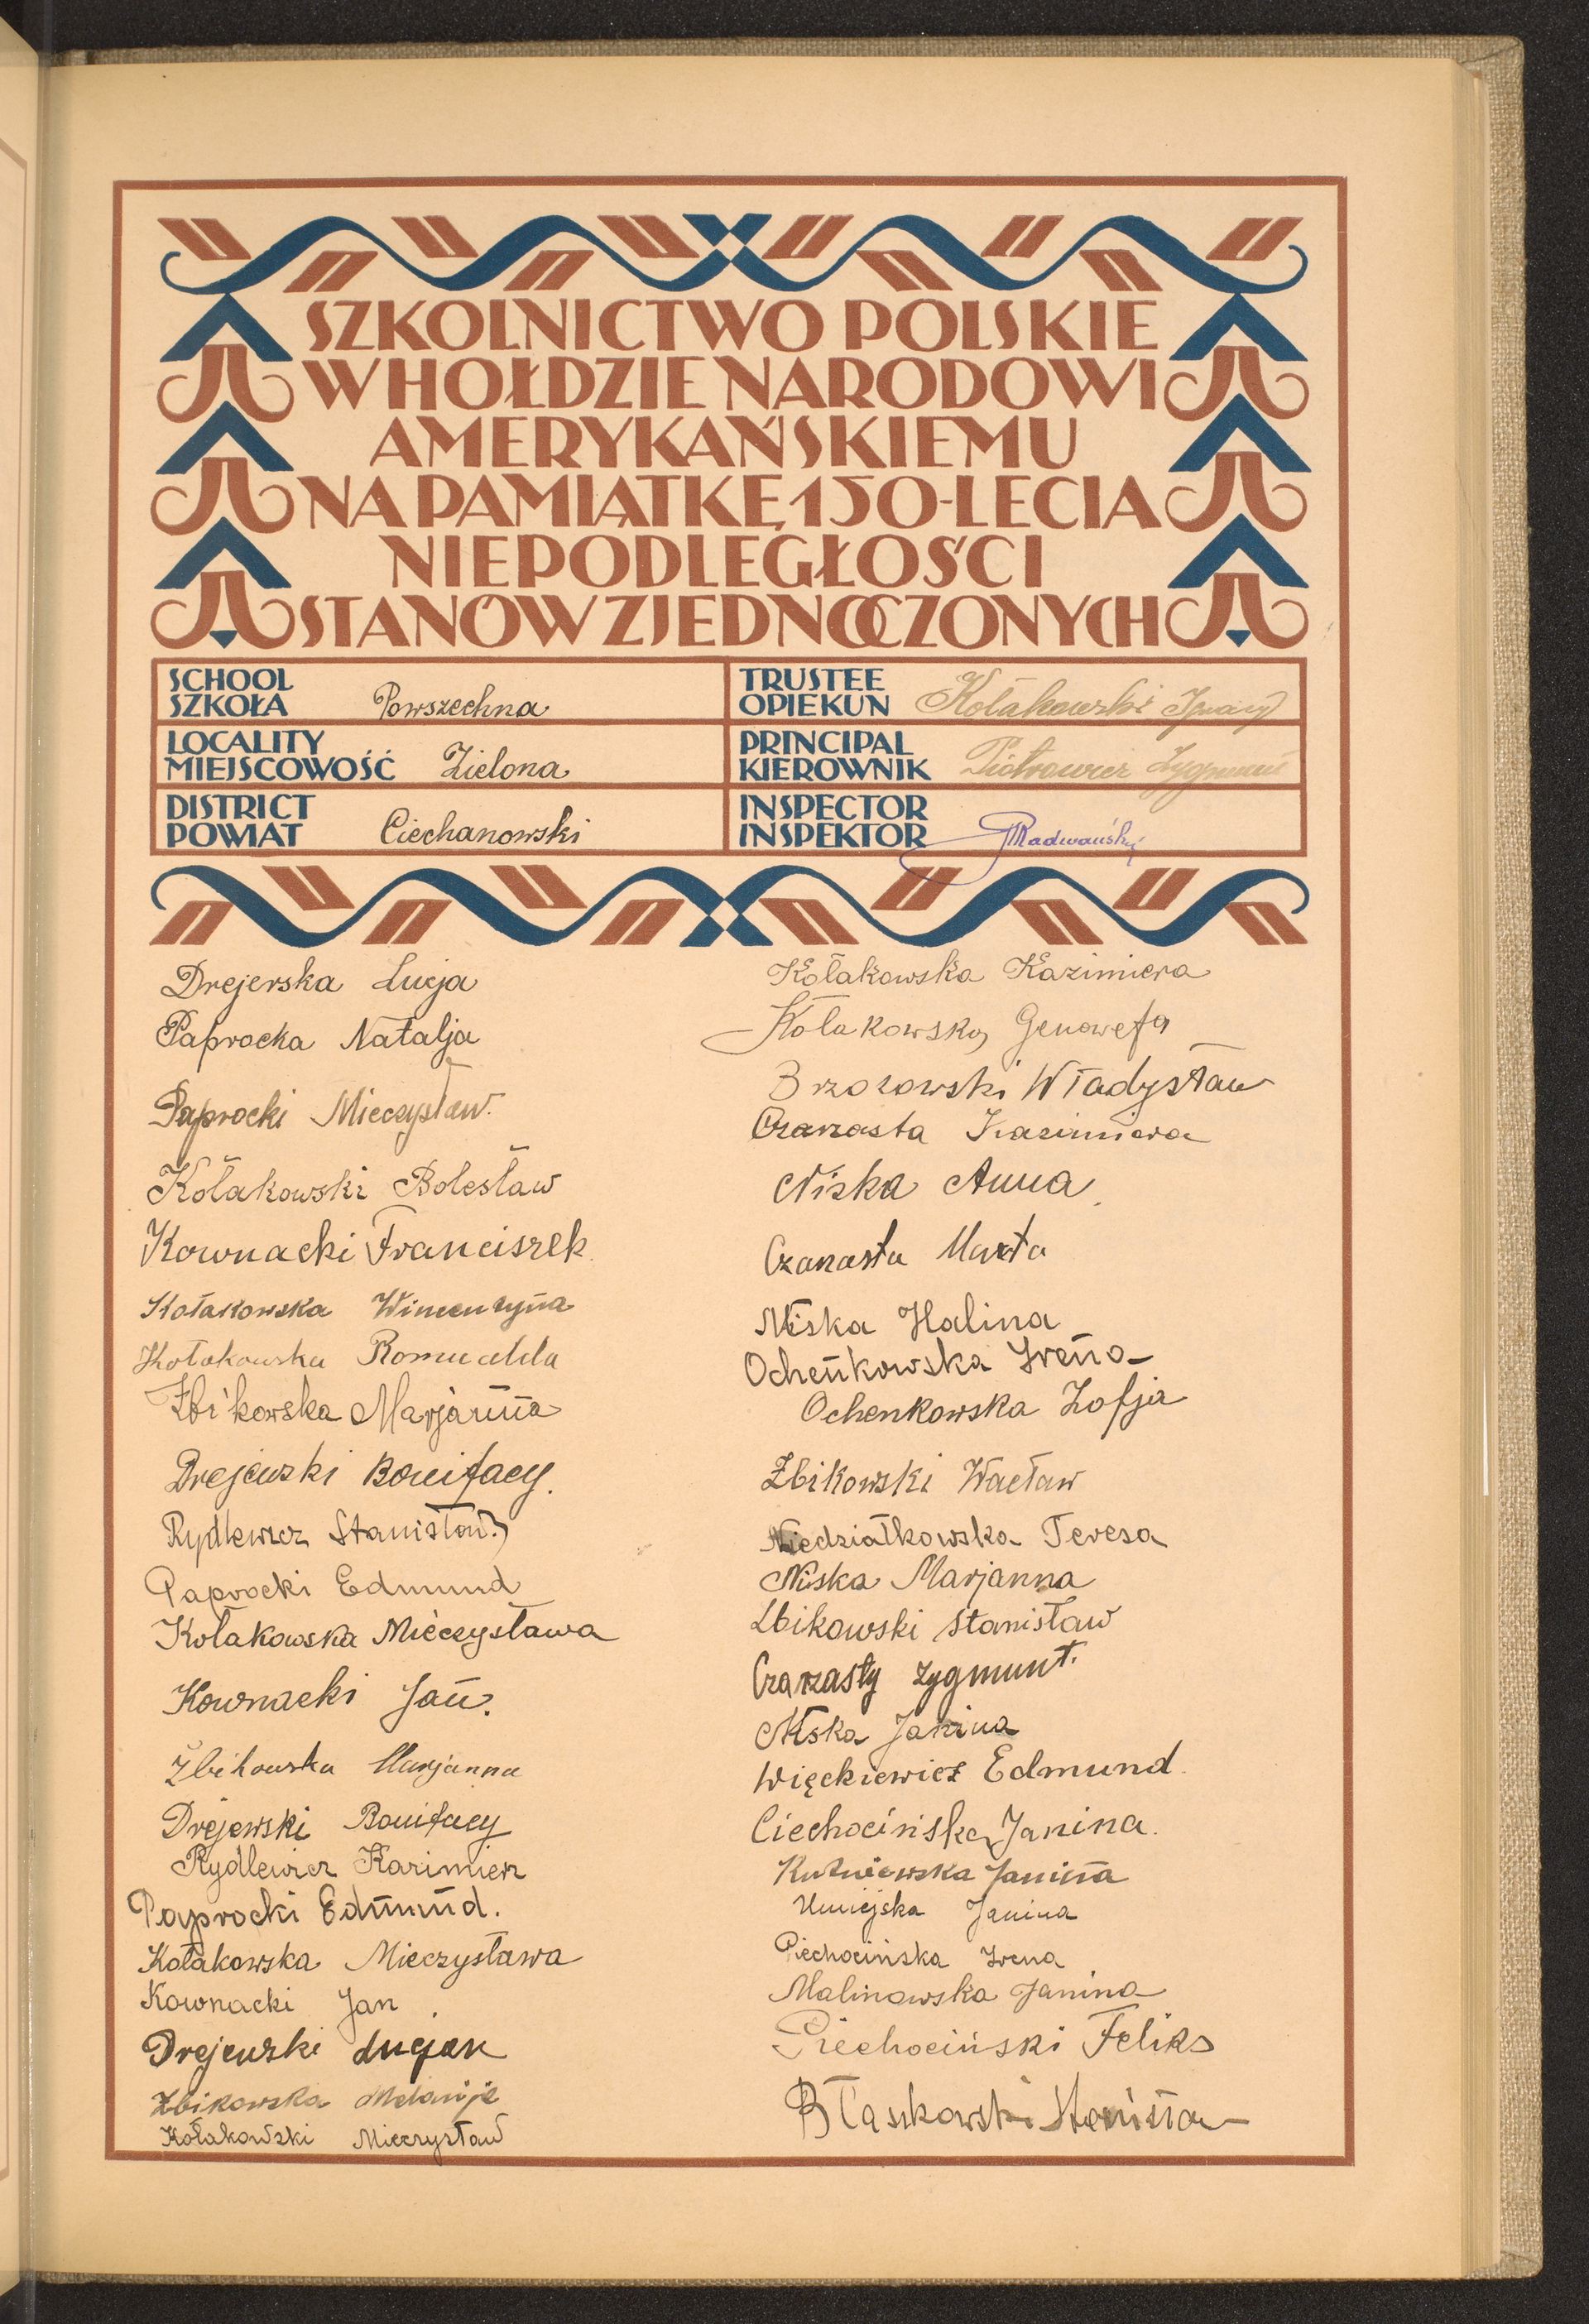 SZKOLNICTWO POLSKIE
W HOŁDZIE NARODOWI
AMERYKAŃSKIEMU
NA PAMIĄTKĘ 150-LECIA
NIEPODLEGŁOŚCI
STANÓW ZJEDNOCZONYCH
SCHOOL
SZKOŁA Powszechna
TRUSTEE
OPIEKUN Kołakowski Ignacy
LOCALITY
MIEJSCOWOŚĆ Zielona
PRINCIPAL
KIEROWNIK Piotrowicz Zygmunt
DISTRICT
POWIAT Ciechanowski
INSPECTOR
INSPEKTOR Radwański
Drejerska Łucja
Paprocka Natalja
Paprocki Mieczysław.
Kołakowski Bolesław
Kownacki Franciszek
Kołakowska Wincenzyna
Kołakowska Romualda
Żbikowska Marjanna
Drejewski Bonifacy.
Rydlewicz Stanisław
Paprocki Edmund
Kołakowska Mieczysława
Kownacki Jan.
Żbikowska Marjanna
Drejewski Bonifacy
Rydlewicz Kazimierz
Paprocki Edmund.
Kołakowska Mieczysława
Kownacki Jan.
Drejewski Lucjan
Żbikowska Melanija
Kołakowski Mieczysław
Kołakowska Kazimiera
Kołakowska Genowefa
Brzozowski Władysław
Czarzasta Kazimiera
Niska Anna
Czarzasta Marta
Niska Halina
Ochenkowska Irena
Ochenkowska Zofja
Żbikowski Wacław
Niedziałkowska Teresa
Niska Marjanna
Żbikowski Stanisław
Czarzasty Zygmunt.
Niska Janina
Więckiewicz Edmund
Ciechocińska Janina.
Kutniewska Janina
Umiejska Janina
Piechocińska Irena
Malinowska Janina
Piechociński Feliks
Błaszkowski Stanisław